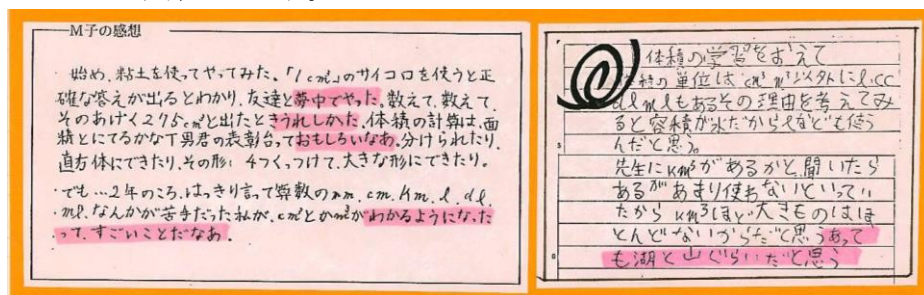 M子の感想
始め、粘土を使ってやってみた。「1cm³」のサイコロを使うと正
確な答えが出るとわかり、友達と夢中でやった。数えて、数えて、
そのあげく275cm³と出たときうれしかった。体積の計算は、面
積とにてるかな丁男君の表彰台っておもしろいなあ。分けられたり、
直方体にできたり、その形に4つくっつけて、大きな形にできたり。
でも…2年のころ、はっきり言って算数のmm、cm、Km、l、dl、
ml、なんかが苦手だった私が、cm³とかm³がわかるようになった
って、すごいことだなあ。
体積の学習をおえて
体積の単位は cm³ m³ 以外にl.cc
dl mlもあるその理由を考えてみ
ると容積が水だからlなども使う
んだと思う。
先生にKm³があるかと聞いたら
あるがあまり使わないといってい
たから Km³ほど大きものはほ
とんどないからだと思うあって
も湖と山ぐらいだと思う